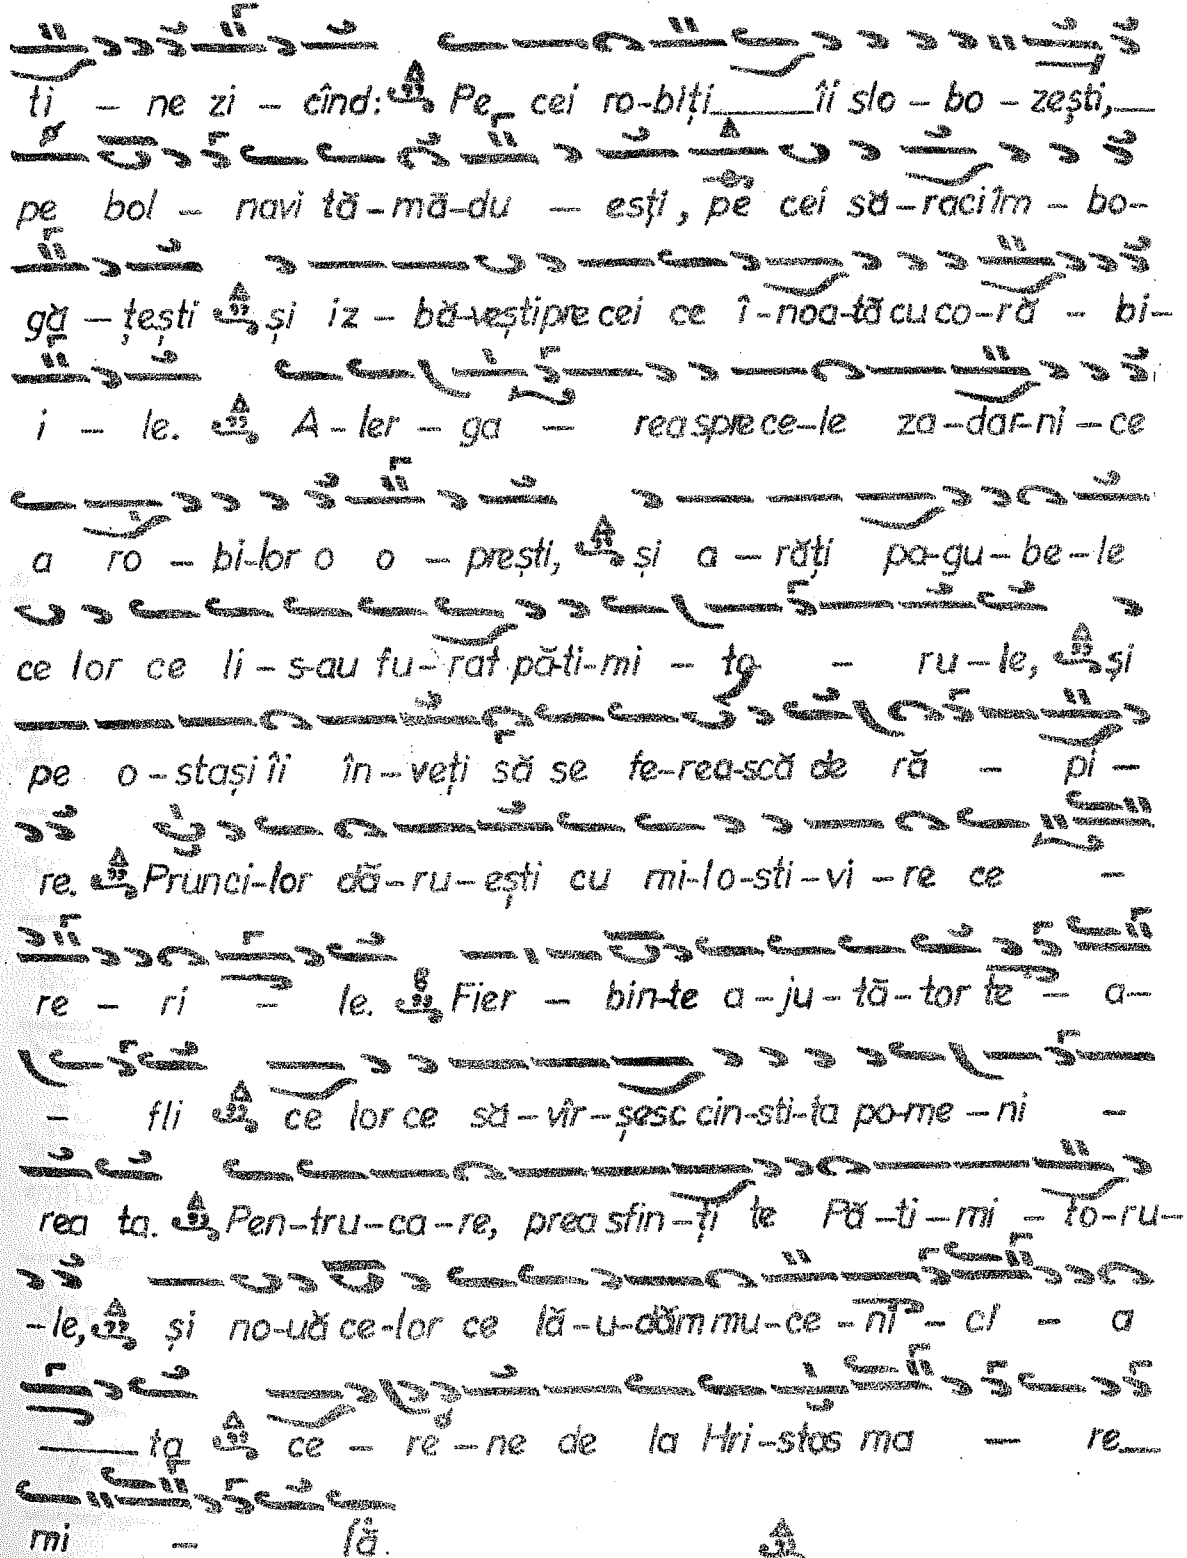 ti – ne zi – cînd: Pe cei ro-biți îi slo – bo – zești,
pe bol – navi tă – mă – du – ești, pe cei să – raci îm – bo –
gă – țești și iz – bă-vești pre cei ce î – noa-tă cu co-ră – bi –
i – le. A – ler – ga – rea spre ce-le za – dar-ni – ce
a ro – bi-lor o o – prești, și a – răți pa-gu – be – le
ce lor ce li – s-au fu – rat pă-ti-mi – to – ru – le, și
pe o – stași îi în – veți să se fe-rea-scă de ră – pi –
re. Prunci-lor dă – ru – ești cu mi-lo-sti – vi – re ce –
re – ri – le. Fier – bin-te a – ju – tă – tor te – a –
– fli ce lor ce să – vîr – șesc cin-sti-ta po-me – ni –
rea ta. Pen – tru – ca – re, prea sfin – ți te Pă – ti – mi – to-ru –
– le, și no-uă ce-lor ce lă – u-dăm mu – ce – ni – ci – a
ta ce – re – ne de la Hri – stos ma – re
mi – lă.